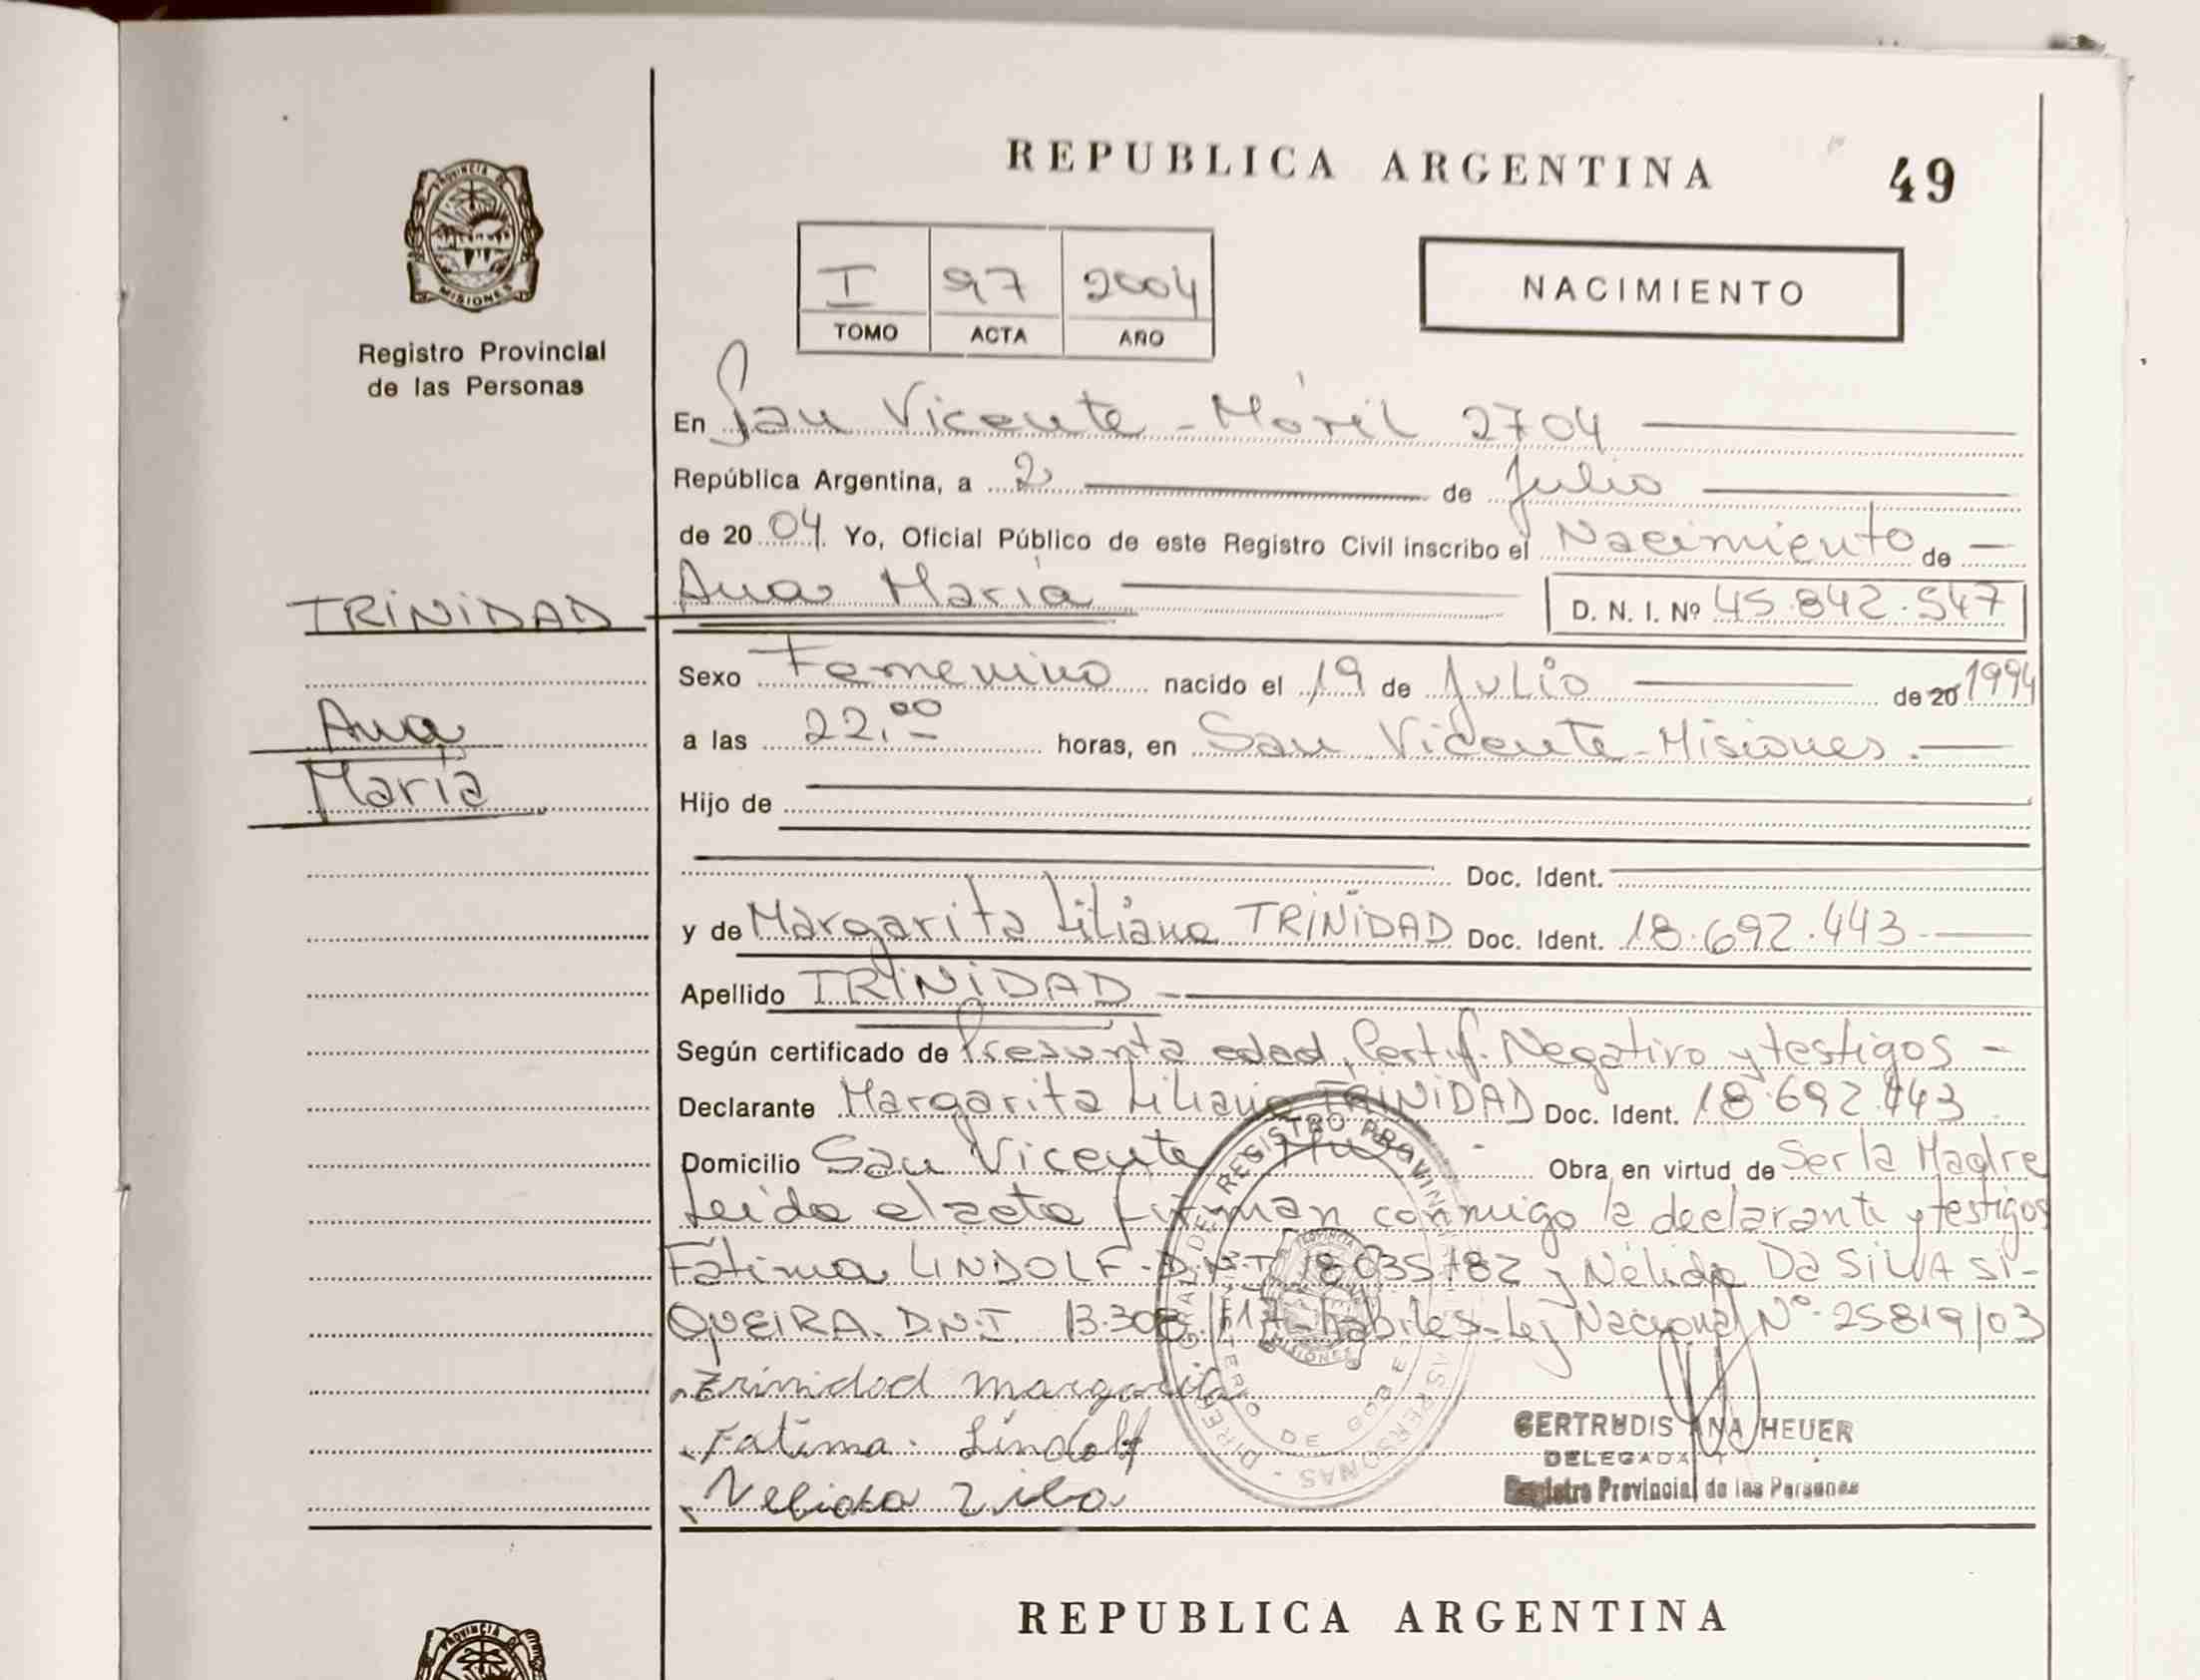 REPUBLICA ARGENTINA
49
PROVINCIA DE
MISIONES
Registro Provincial
de las Personas
I 97 2004
TOMO ACTA AÑO
NACIMIENTO
En San Vicente - Móvil 2704
República Argentina, a 2 de Julio
de 20 04. Yo, Oficial Público de este Registro Civil inscribo el Nacimiento de
TRINIDAD Ana María D. N. I. Nº 45.842.547
Sexo Femenino nacido el 19 de Julio de 20 1994
Ana
a las 22.00 horas, en San Vicente - Misiones.
María
Hijo de
Doc. Ident.
y de Margarita Liliana TRINIDAD Doc. Ident. 18.692.443
Apellido TRINIDAD
Según certificado de Presunta edad, Certif. Negativo y testigos -
Declarante Margarita Liliana TRINIDAD Doc. Ident. 18.692.443
Domicilio San Vicente Obra en virtud de Ser la Madre
Leída el acta firman conmigo la declarante y testigos
Fátima LINDOLF - D.N.I. y Nélida Da SILVA Si-
QUEIRA. D.N.I. habiles - Ley Nacional Nº 25819/03
Trinidad margarita
Fatima. Lindolf
Nelida
GERTRUDIS ANA HEUER
DELEGADA
Registro Provincial de las Personas
REPUBLICA ARGENTINA
PROVINCIA